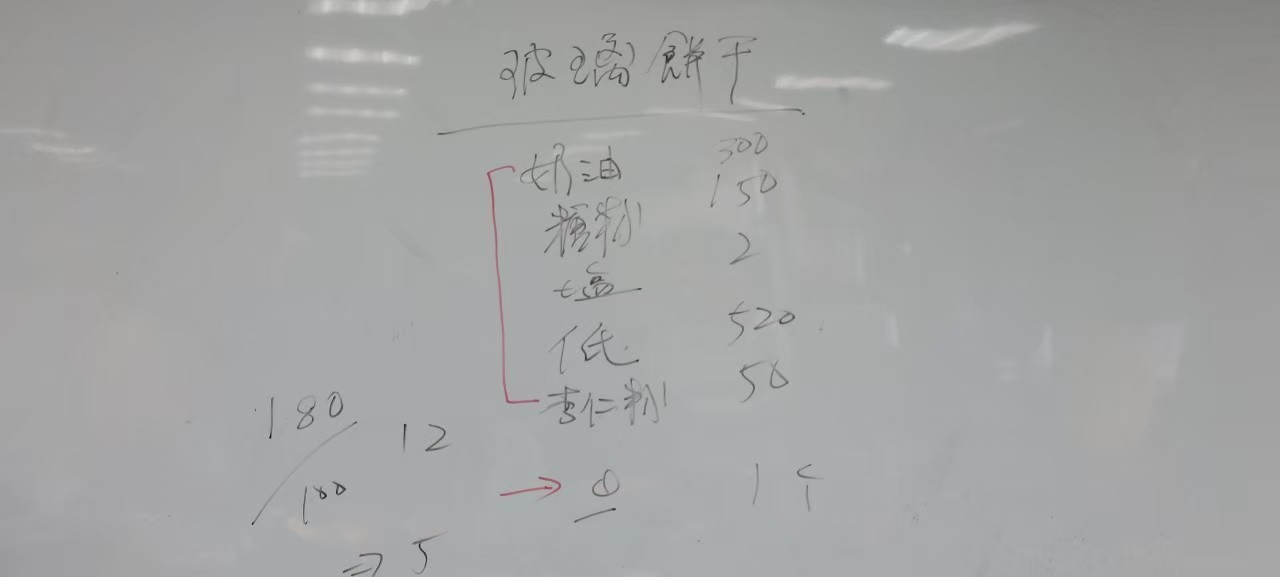 玻璃餅干
奶油 300
糖粉 150
塩 2
低 520
杏仁粉 50
180/100 12
→ ① 1个
⇒ 5